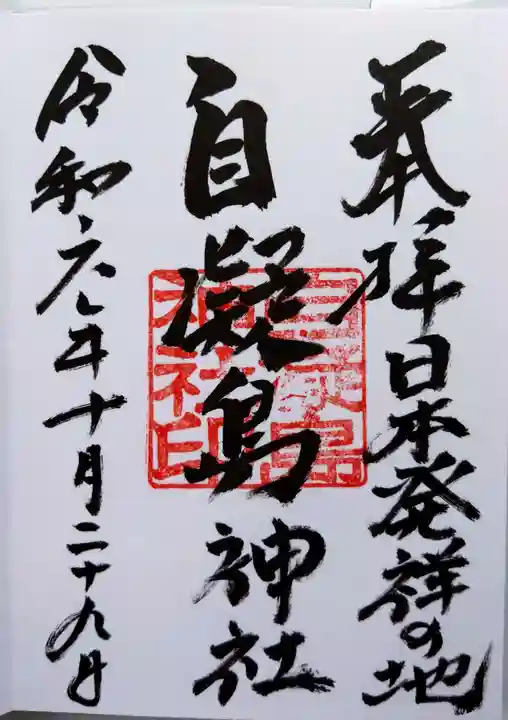 奉拝 日本発祥の地
自凝島神社
自凝島神社印
令和六年十月二十九日